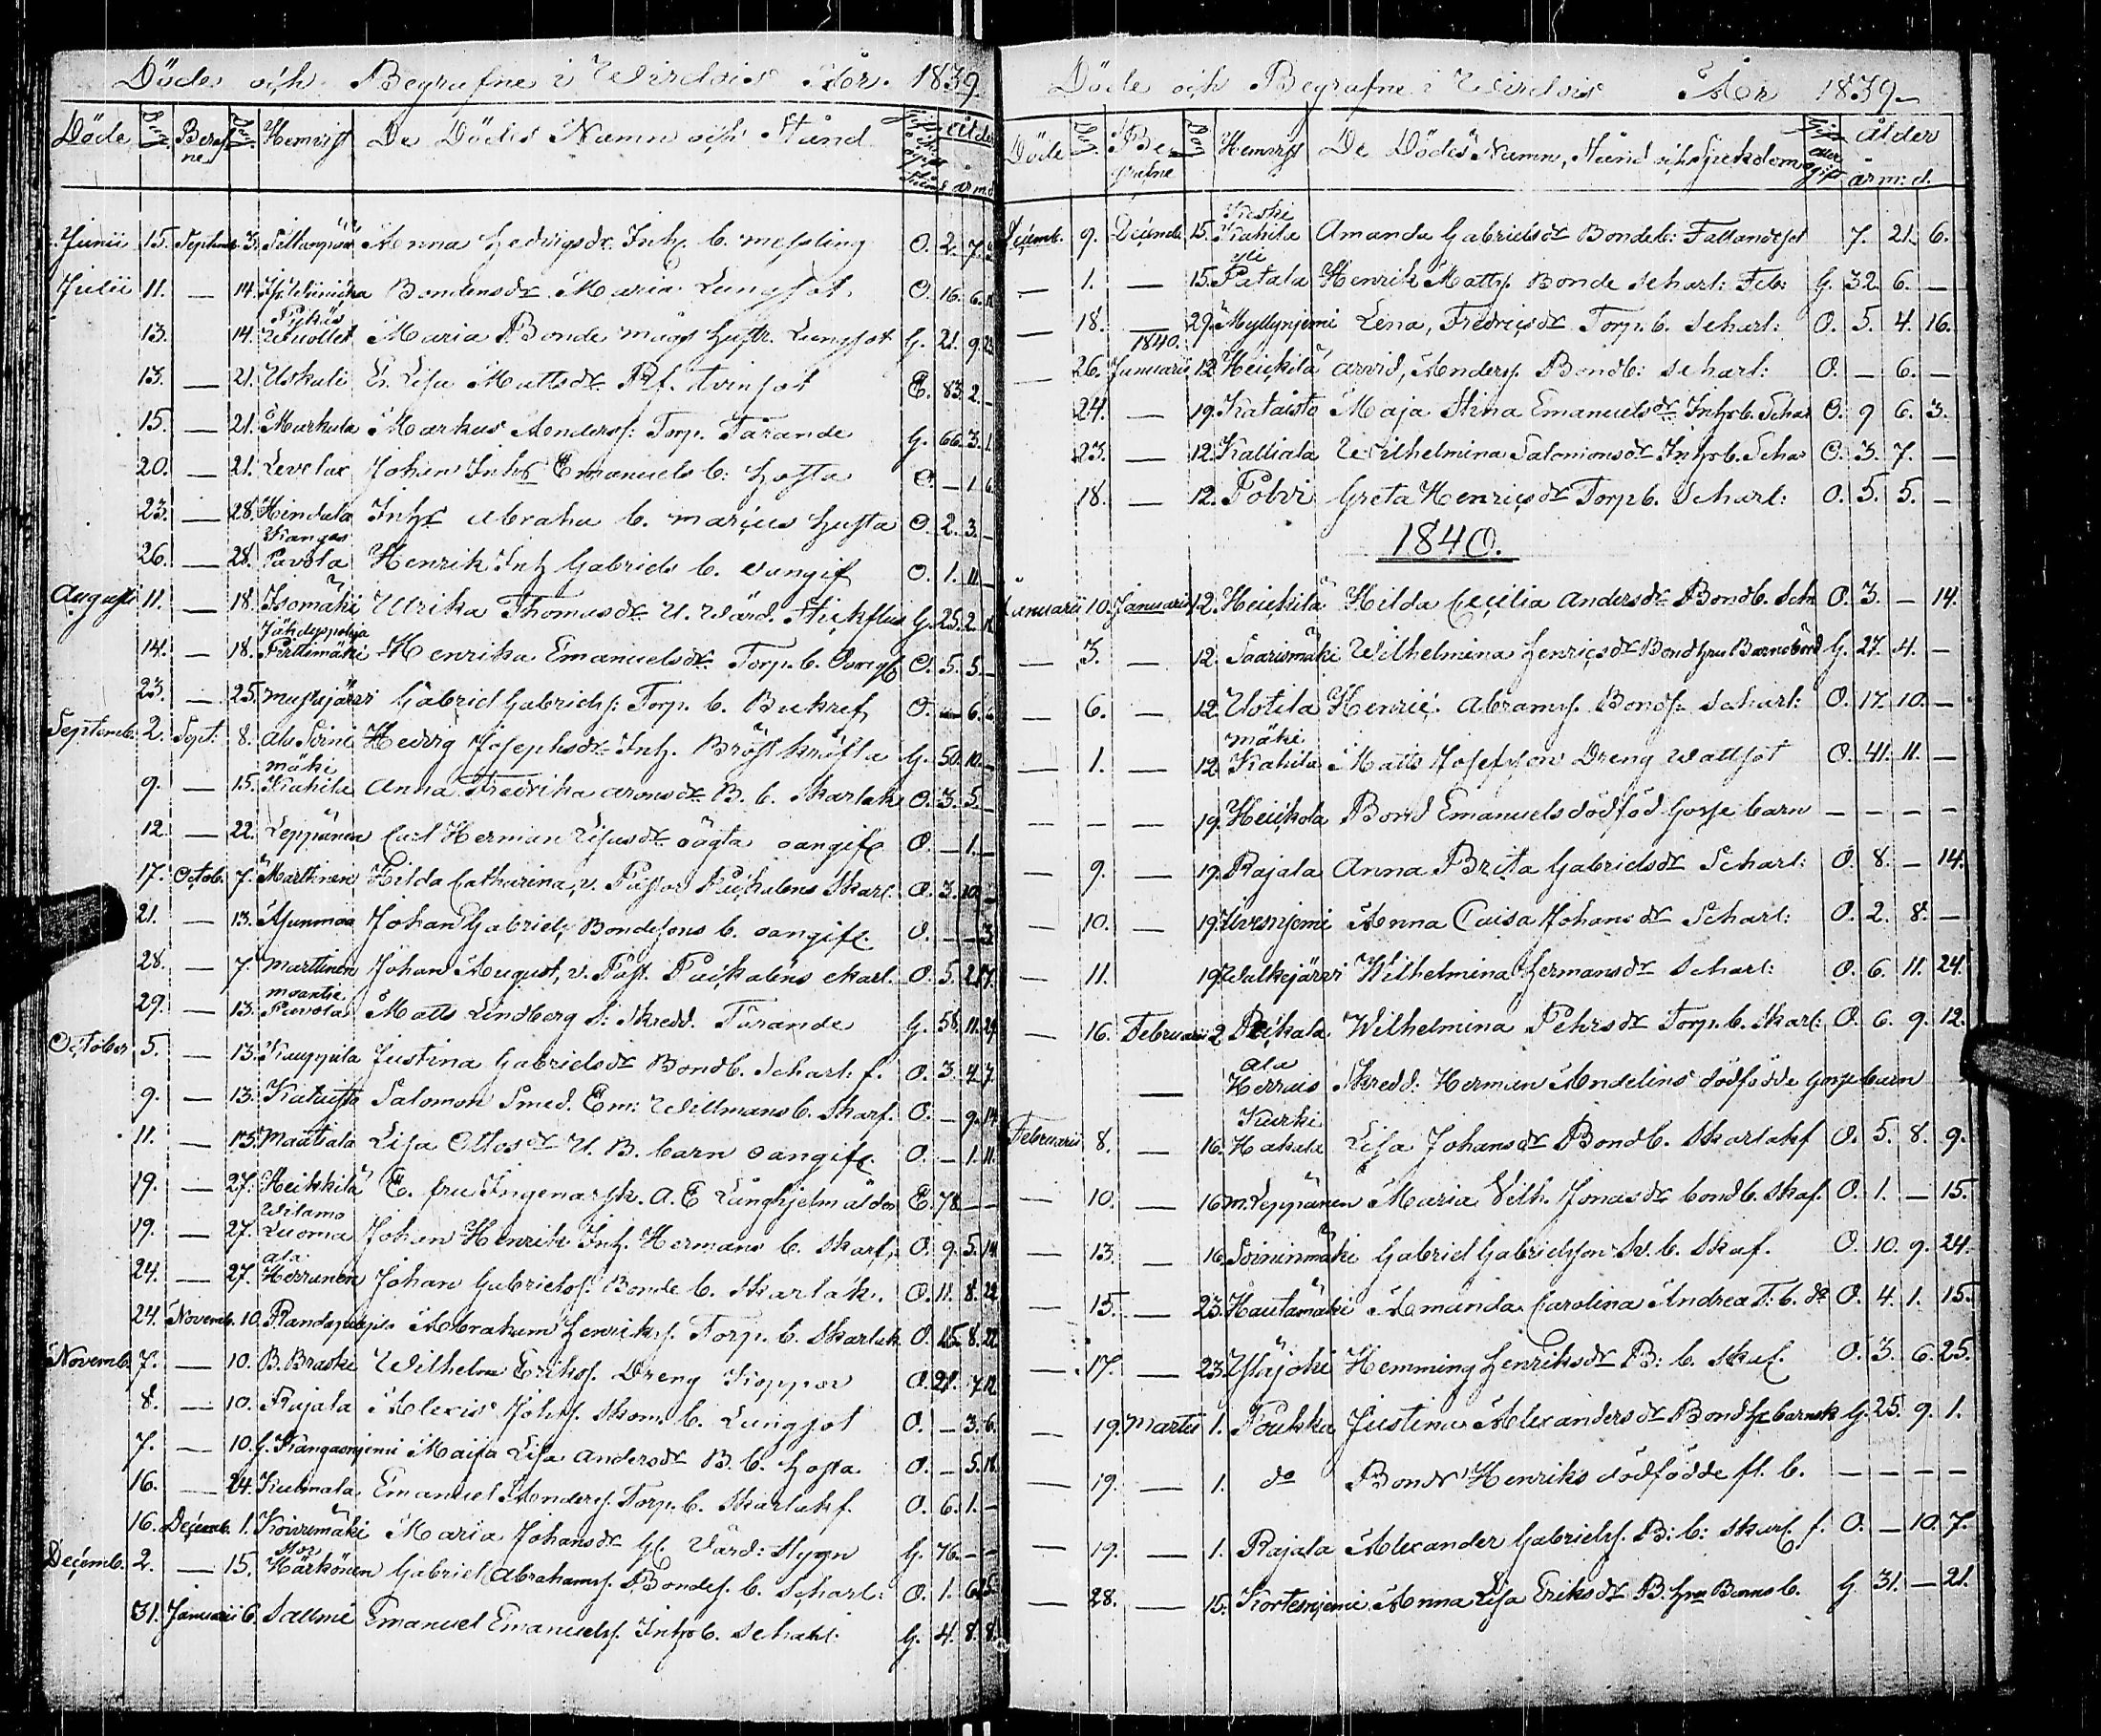 Döde och Begrafne i Wirdois År. 1839.
Döde Dag Begrafne Dag Hemvist De Dödes Namn och Stånd ålder
år m d
Junii 15. Septemb. 3. Anna Hedvigsdr Inh. b. messling O. 2. 7.
Julii 11. — 14. Bondensdr Maria Lungsot O. 16. 6.
13. 14. Maria Bonde mågs hustr. Lungsot G. 21. 9. 23
13. — 21. Uskali E. Lisa Mattsdr Rf. tvinsot E. 83. 2. –
15. — 21. Markula Markus Anderss: Torp. Tärande G. 66. 3. 1.
20. — 21. Levelax Johan Inhs Emanuels b. Hosta O. – 1. 6.
23. — 28. Hindala Inhs Abraha b. marcus Husta O. 2. 3. –
Kangas
26. — 28. Pavola Henrik Inh Gabriels b. oangif O. 1. 11. –
Augusti 11. — 18. Isomäki Ulrika Thomasdr U. Wärd. Stickfluss G. 25. 2.
Jähdyspohja
14. — 18. Pirttimäki Henrika Emanuelsdr Torp. b. Oangf O. 5. 5. –
23. — 25. Mustajärvi Gabriel Gabrielss: Torp. b. Bukref O. – 6.
Septemb. 2. Sept: 8. Ala Soini Hedvig Josephsdr Inh. Bröstkräfta G. 50. 10. –
mäki
9. — 15. Kahila Anna Fredrika aronsdr B. b. Skarlak O. 3. 5. –
12. — 22. Leppänen Carl Herman Lisasdr oägta oangif O. – 1. –
17. Octob. 7. Marttinen Hilda Catharina, v. Pastor Skarl. O. 3. 10.
21. — 13. Ajunmaa Johan Gabriels Bondesons b. oangif. O. – – 3
28. — 7. Marttinen Johan August, v. Past. skarl. O. 5. 2. 17.
29. — 13. Pavola Matts Lindberg S. Skredd. Tärande G. 58. 11. 29
October 5. — 13. Kauppila Justina Gabrielsdr Bondb. Scharl: f. O. 3. 4. 7.
9. — 13. Katuista Salomon Smed. Em: Willmans b. Skarf. O. – 9. 14
11. — 13. Maatiala Lisa Ottosdr U. B. barn oangif. O. – 1. 11.
19. — 27. Heikkilä E. fru Ingenarsk. A. E Ljunghjelm ålder E. 78 – –
19. — 27. Luoma Johan Henrik Inh. Hermans b. Skarf. O. 9. 5. 14
ala
24. — 27. Herranen Johan Gabrielss: Bonde b. Skarlak. O. 11. 8. 22
24. Novemb. 10. Abraham Henrikss. Torp. b. Skarlak O. 15. 8. 22
Novemb. 7. — 10. B. Braski Wilhelm Erikss. Dreng Koppor O. 21. 7. 12
8. — 10. Rajala Alexis Johss. Skom. b. Lungsot O. – 3. 6.
7. — 10. G. Kangasniemi Maija Lisa Andersdr B. b. Hosta O. – 5. 18.
16. — 24. Kulmala Emanuel Anderss. Torp. b. Skarlakf. O. 6. 1. –
16. Decemb. 1. Koivumäki Maria Johansdr Gl. Värd: Slygn G. 76. – –
Stor
Decemb. 2. — 15. Härkönen Gabriel Abrahams. Bondes. b. Scharl: O. 1. 6.
31. Januarii 6. Sallmi Emanuel Emanuelss. Inhs b. Scharl: G. 4. 8. 8.
Döde och Begrafne i Wirdois År 1839.
Döde Dag Begrafne Dag Hemvist De Dödes Namn, Stånd och Sjukdom Gift eller ogift ålder
år m: d.
Keski
Decemb. 9. Decemb 15. Kahila Amanda Gabrielsdr Bondeb: Fallandesot 7. 21. 6.
yli
— 1. — 15. Patala Henrik Matts. Bonde Scharl: Feb: G. 32. 6. —
— 18. — 29. Myllyniemi Lena, Fredricsdr Torp. b. Scharl: O. 5. 4. 16.
1840.
— 26. Januarii 12 Heickilä Arvid, Anderss. Bondb: Scharl: O. — 6. —
24. — 19. Kataisto Maja Stina Emanuelsdr Inhs b. Schar O. 9 6. 3.
23. — 12. Kalliala Wilhelmina Salomonsdr Inhs b. Schar O. 3. 7. —
18. — 12. Polvi Greta Henricsdr Torp b. Scharl: O. 5. 5. —
1840.
Januarii 10. Januarii 12. Heickilä Hilda Cecilia Andersdr Bondb. Sch O. 3. — 14.
— 3. — 12. Saarismäki Wilhelmina Henricsdr Bondhru Barnsbörd G. 27. 4. —
— 6. — 12. Uotila Henric Abrams. Bonds. Scharl: O. 17. 10. —
mäki
— 1. — 12. Kahila Matts Josefsson Dreng Wattsot O. 41. 11. —
— — — 19. Heickola Bond Emanuels dödföd Gosse barn — — — —
— 9. — 19. Rajala Anna Brita Gabrielsdr Scharl: O. 8. — 14.
— 10. — 19. Anna Caisa Johansdr Scharl: O. 2. 8. —
— 11. 19. Walkejärvi Wilhelmina Hermansdr Scharl: O. 6. 11. 24.
— 16. Februarii 2. Wilhelmina Pehrsdr Torp. b. Skarl: O. 6. 9. 12.
ala
— Herrais Skredd. Herman Andelins dödfödde gosse barn
Kurki
Februarii 8. — 16. Hakala Lisa Johansdr Bondb. Skarlakf O. 5. 8. 9.
— 10. — 16 M. Leppänen Maria Vilh. Jonasdr bondb. Skaf. O. 1. — 15.
— 13. — 16. Soininmäki Gabriel Gabrielsson Sv. b. Skaf. O. 10. 9. 24.
— 15. — 23. Hautamäki Amanda Carolina Andrea T. b. do O. 4. 1. 15.
— 17. — 23. Yläjoki Hemming Henriksdr B: b. Skaf. O. 3. 6. 25.
— 19. Martii 1. Pouhka Justina Alexandersdr Bondhr barnsb G. 25. 9. 1.
— 19. — 1. do Bondr Henriks dödfödde fl. b. — — — —
— 19. — 1. Rajala Alexander Gabrielss. B: b: Skarl. f. O. — 10. 7.
— 28. — 15. Kortesniemi Anna Lisa Eriksdr B. hru Barns b. G 31. — 21.